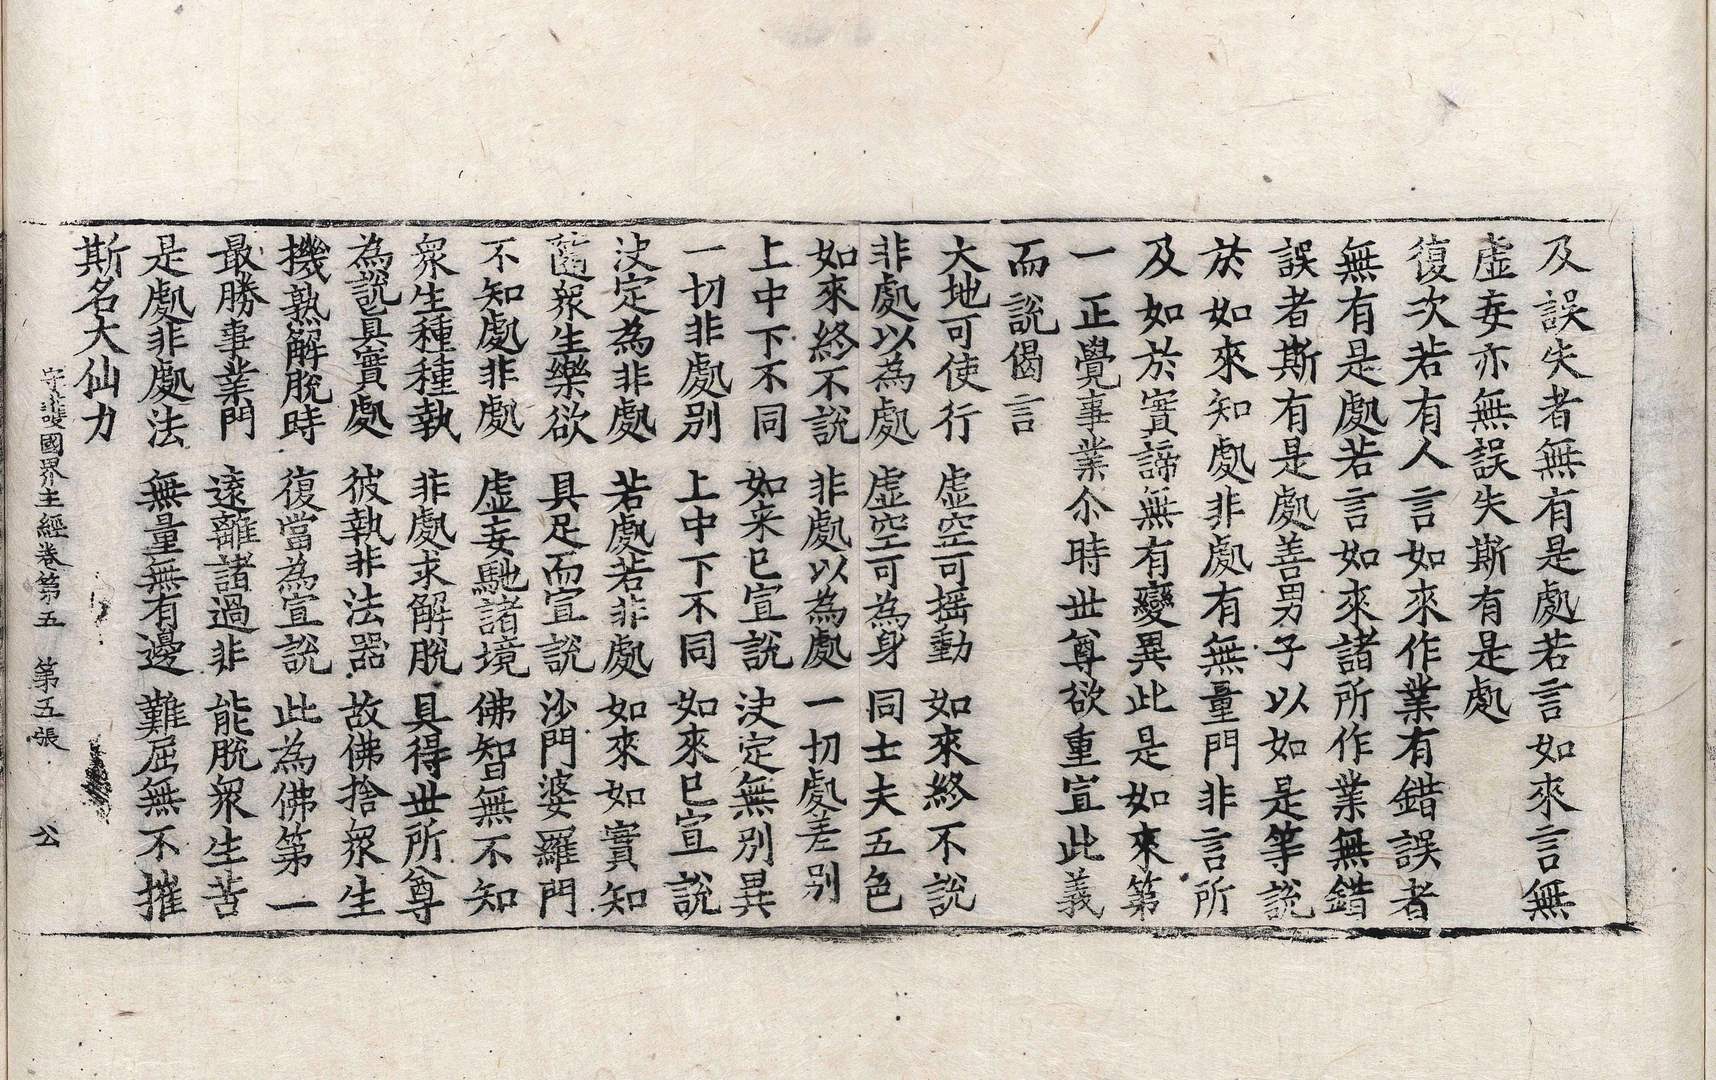 及誤失者無有是處若言如來言無
虛妄亦無誤失斯有是處
復次若有人言如來作業有錯誤者
無有是處若言如來諸所作業無錯
誤者斯有是處善男子以如是等說
於如來知處非處有無量門非言所
及如於實諦無有變異此是如來第
一正覺事業尒時世尊欲重宣此義
而說偈言
大地可使行　虛空可揺動　如來終不說
非處以為處　虛空可為身　同士夫五色
如來終不說　非處以為處　一切處差別
上中下不同　如来已宣說　決定無別異
一切非處別　上中下不同　如來已宣說
決定為非處　若處若非處　如來如實知
隨衆生樂欲　具足而宣說　沙門婆羅門
不知處非處　虛妄馳諸境　佛智無不知
衆生種種執　非處求解脫　具得世所尊
為說真實處　彼執非法器　故佛捨衆生
機熟解脫時　復當為宣說　此為佛第一
最勝事業門　遠離諸過非　能脫衆生苦
是處非處法　無量無有邊　難屈無不摧
斯名大仙力
守護國界主經卷第五　第五張　公